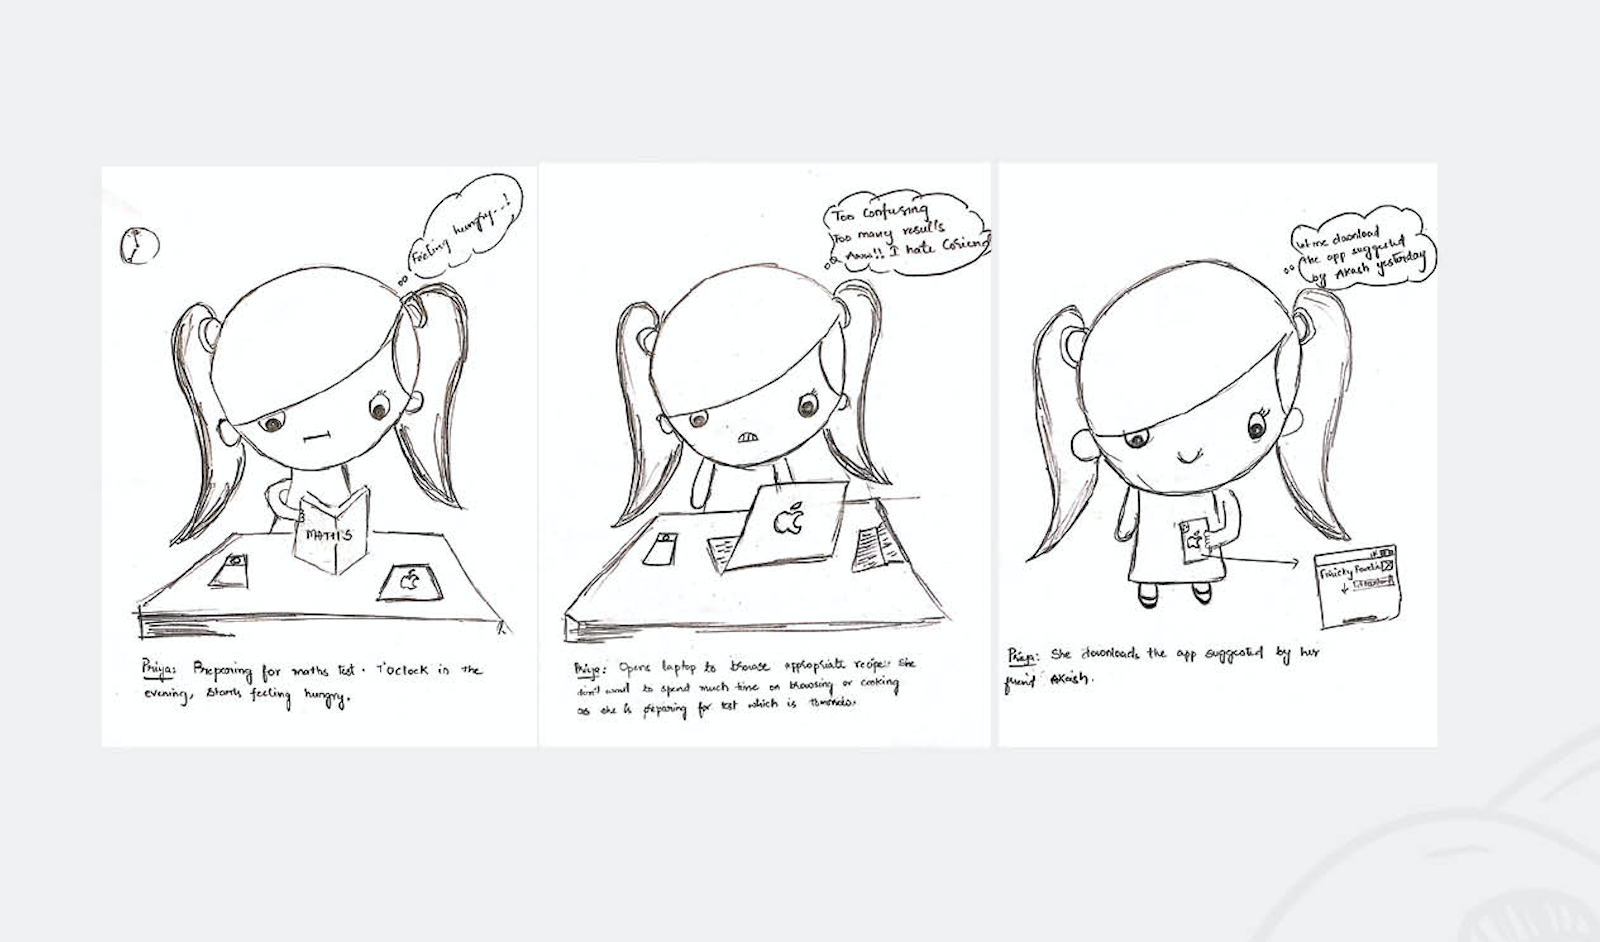 Feeling hungry...!
MATHS
Priya: Preparing for maths test. 7'Oclock in the
evening, Starts feeling hungry.
Too confusing
Too many results
Aww!! I hate
Priya: Opens laptop to browse appropriate recipe. She
don't want to spend much time on browsing or cooking
as she is preparing for test which is
Let me download
the app suggested
by Akash yesterday
Priya: She downloads the app suggested by her
friend Akash.